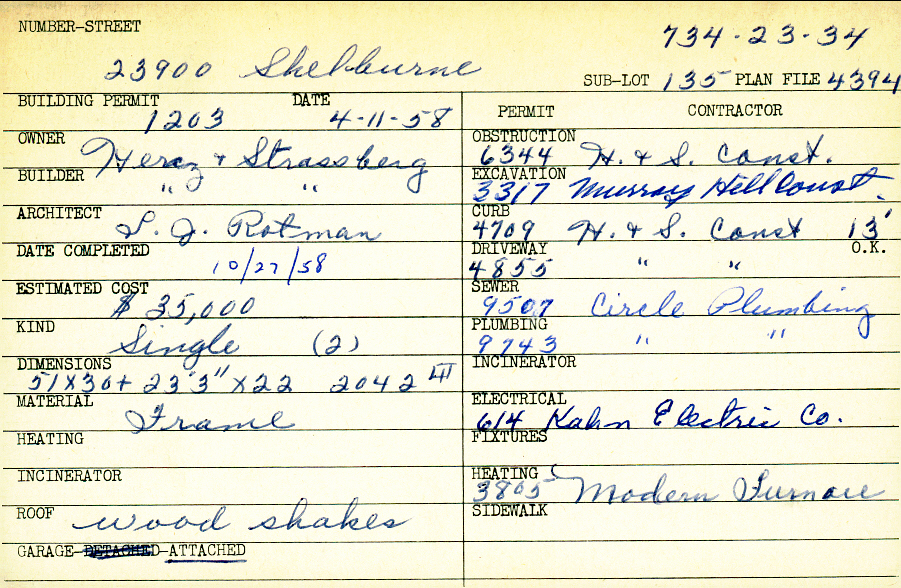 NUMBER-STREET
734-23-34
23900 Shelburne
SUB-LOT 135 PLAN FILE 4394
BUILDING PERMIT DATE
1203 4-11-58
PERMIT CONTRACTOR
OWNER Herez & Strassberg
OBSTRUCTION
6344 H. & S. Const.
BUILDER " "
EXCAVATION
3317 Murray Hill Const.
ARCHITECT
S. J. Rotman
CURB
4709 H. & S. Const 13'
DATE COMPLETED
10/27/58
DRIVEWAY O.K.
4855 " "
ESTIMATED COST
$ 35,000
SEWER
9507 Circle Plumbing
KIND
Single (2)
PLUMBING
9743 " "
DIMENSIONS
51x30+ 23'3" x 22 2042
INCINERATOR
MATERIAL
Frame
ELECTRICAL
614 Kahn Electric Co.
HEATING
FIXTURES
INCINERATOR
HEATING
3805 Modern Furnace
ROOF wood shakes
SIDEWALK
GARAGE-DETACHED-ATTACHED